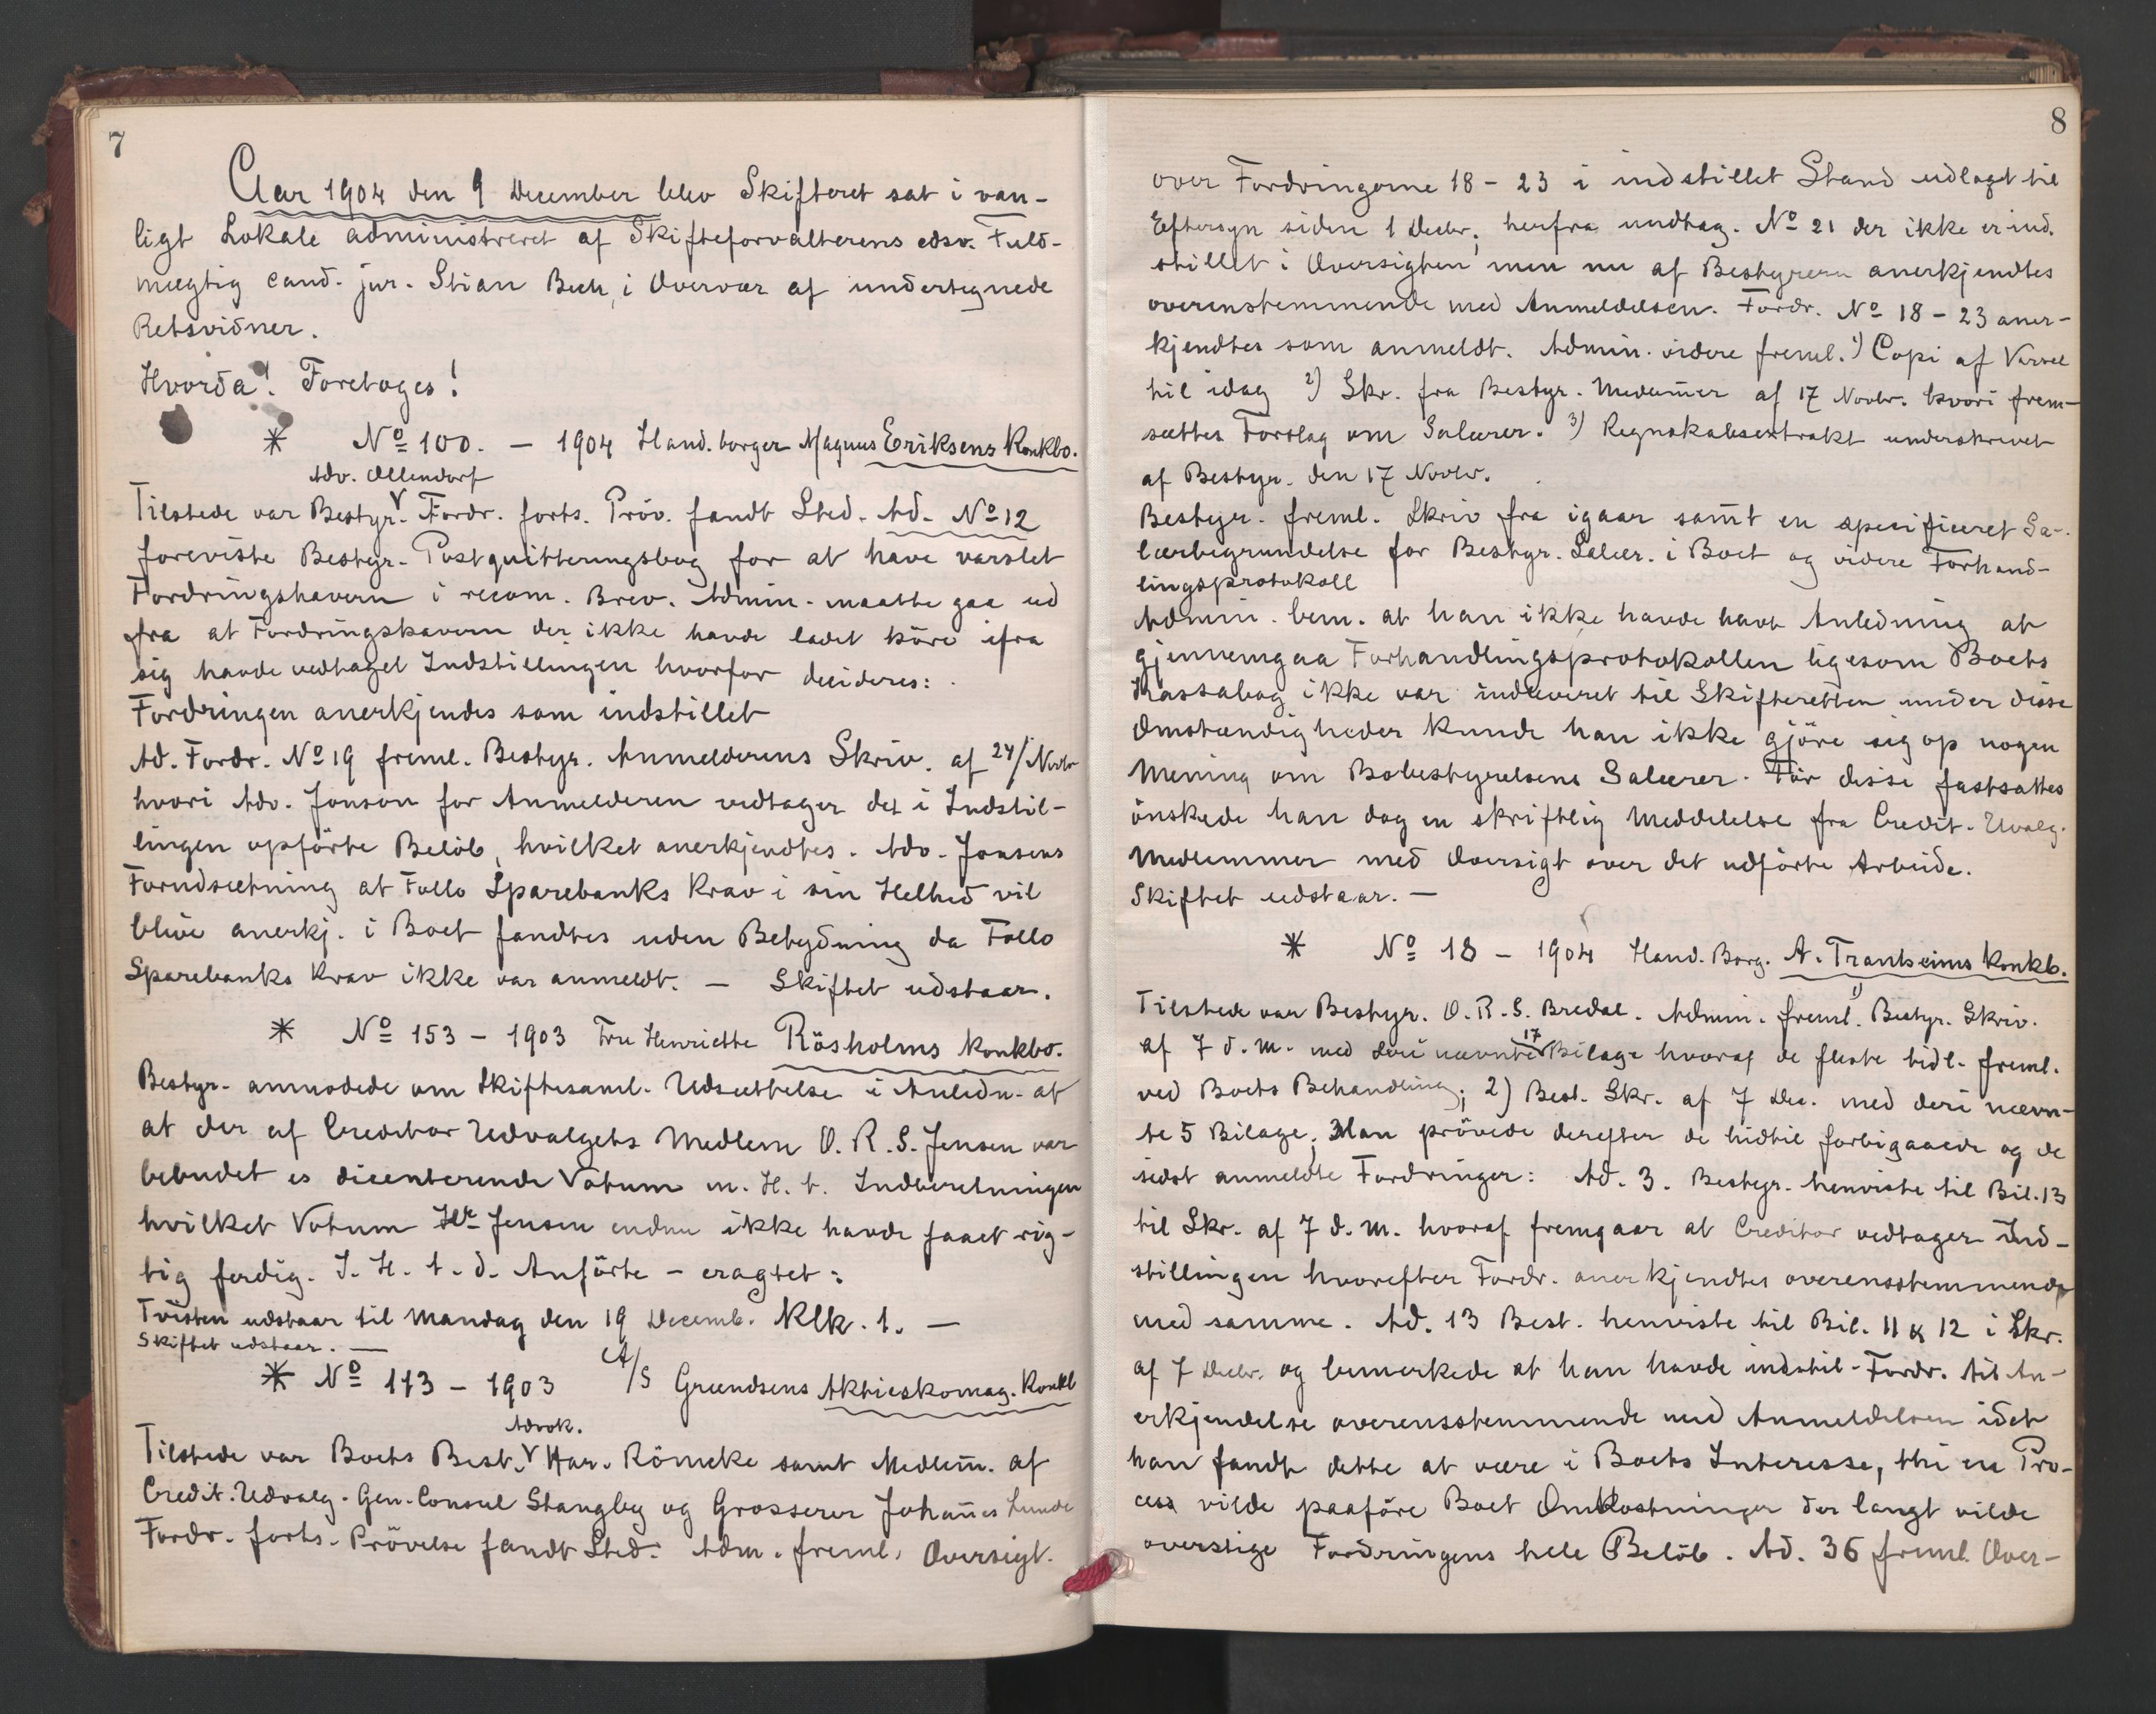 7
Aar 1904 den 9 December blev Skifteret sat i van-
ligt Lokale administreret af Skifteforvalterens edsv. Fuld-
mægtig cand. jur. Stian Bech, i Overvær af undertegnede
Retsvidner.
Hvorda! Foretoges!
* No 100. – 1904 Hand. borger Magnus Eriksens Konkbo.
Adv. Ollendorf
Tilstede var Bestyr. Fordr. forts. Pröv. fandt Sted. Ad. No 12
foreviste Bestyr. Postquitteringsbog for at have varslet
Fordringshavern i recom. Brev. Admin. maatte gaa ud
fra at Fordringshavern der ikke havde ladet höre ifra
sig havde vedtaget Indstillingen hvorfor decideres:
Fordringen anerkjendes som indstillet
Ad. Fordr. No 19 freml. Bestyr. Anmelderens Skriv. af 24/ Novbr
hvori Adv. Jonson for Anmelderen vedtager det i Indstil-
lingen opförte Belöb, hvilket anerkjendtes. Adv. Jonsens
Forudsætning at Follo Sparebanks Krav i sin Helhed vil
blive anerkj. i Boet fandtes uden Betydning da Follo
Sparebanks Krav ikke var anmeldt. – Skiftet udstaar.
* No 153 – 1903 Fru Henriette Rösholms Konkbo.
Bestyr. anmodede om Skiftesaml. Udsættelse i Anledn. af
at der af Creditor Udvalgets Medlem O. R. S. Jensen var
bebudet es dicenterende Votum m. H. t. Indberetningen
hvilket Votum Hr Jensen endnu ikke havde faaet rig-
tig ferdig. I. H. t. d. Anförte – eragtet:
Tvisten udstaar til Mandag den 19 Decemb. Klk. 1. –
Skiftet udstaar. –
* No 113 – 1903 A/S Grændsens Aktieskomag. Konkb
Advok.
Tilstede var Boets Best. Har. Römcke samt Medlem. af
Credit. Udvalg. Gen. Consul Stangby og Grosserer Johannes Lunde
Fordr. forts. Prövelse fandt Sted. Adm. freml. Oversigt.
8
over Fordringerne 18 – 23 i indstillet Stand udlagt til
Eftersyn siden 1 Decbr, herfra undtag. No 21 der ikke er ind.
stillet i Oversigten men nu af Bestyreren anerkjendtes
overenstemmende med Anmeldelsen. Fordr. No 18 – 23 aner-
kjendtes som anmeldt. Admin. videre freml. 1) Copi af Varsel
til idag 2) Skr. fra Bestyr. Medlemer af 17 Novbr. hvori frem-
sættes Forslag om Salærer. 3) Regnskabsextrakt underskrevet
af Bestyr. den 17 Novbr.
Bestyr. freml. Skriv fra igaar samt en specificeret Sa-
lærbegrundelse for Bestyr. Salær. i Boet og videre Forhand-
lingsprotokoll
Admin. bem. at han ikke havde havt Anledning at
gjennemgaa Forhandlingsprotokollen ligesom Boets
Kassabog ikke var indleveret til Skifteretten under disse
Omstændigheder kunde han ikke gjöre sig op nogen
Mening om Bobestyrelsens Salærer. För disse fastsattes
önskede han dog en skriftlig Meddelelse fra Credit. Uvalg.
Medlemmer med Oversigt over det udförte Arbeide.
Skiftet udstaar. –
* No 18 – 1904 Hand. Borg. A. Trantseims Konkb.
Tilstede var Bestyr. O. R. S. Bredal. Admin. freml. 1) Bestyr. Skriv.
af 7 d. M. med deri nævnte 17 Bilage hvoraf de fleste tidl. freml.
ved Boets Behandling; 2) Best. Skr. af 7 Dec. med deri nævn-
te 5 Bilage, Man prövede derefter de hidtil forbigaaede og de
sidst anmeldte Fordringer: Ad. 3. Bestyr. henviste til Bil. 13
til Skr. af 7 d. M. hvoraf fremgaar at Creditor vedtager Ind-
stillingen hvorefter Fordr. anerkjendtes overensstemmende
med samme. Ad. 13 Best. henviste til Bil. 11 & 12 i Skr.
af 7 Decbr. og bemerkede at han havde indstil. Fordr. til An-
erkjendelse overensstemmende med Anmeldelsen idet
han fandt dette at være i Boets Interesse, thi en Pro-
cess vilde paaföre Boet Omkostninger der langt vilde
overstige Fordringens hele Belöb. Ad. 36 freml. Over-